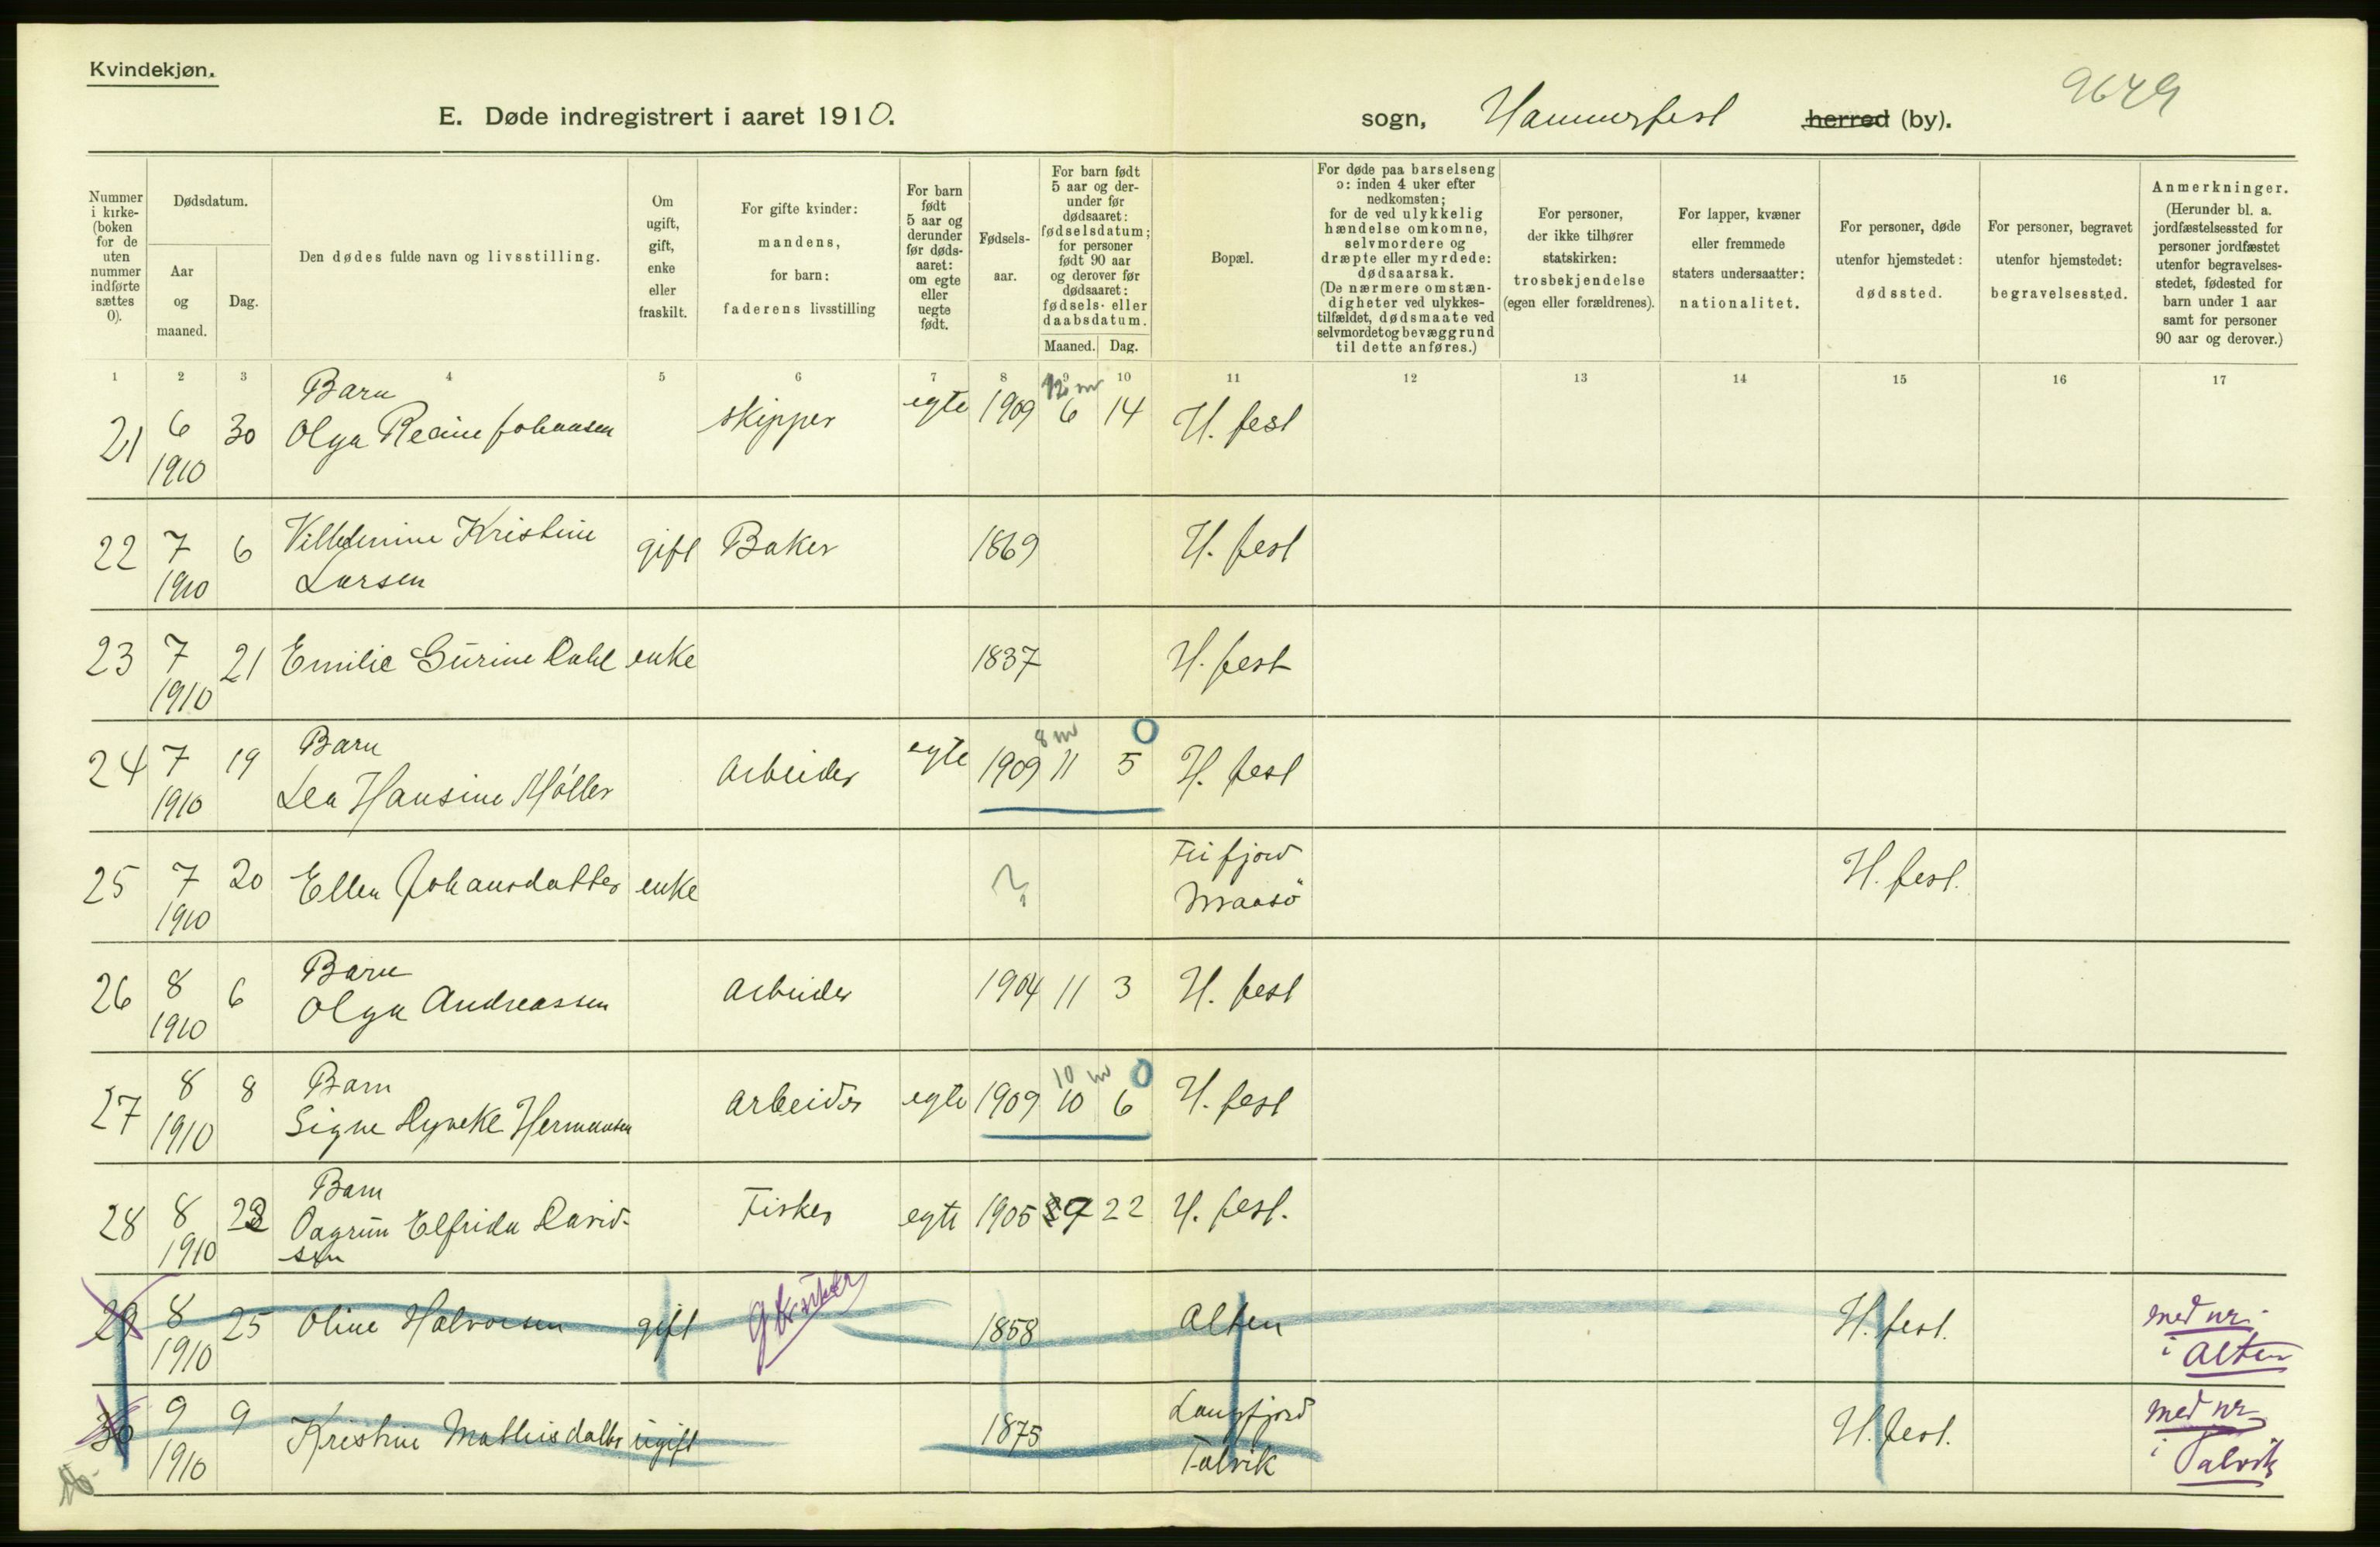 Kvindekjøn.
9649
E. Døde indregistrert i aaret 1910.
sogn, Hammerfest herred (by).
Nummer i kirke-(boken for de uten nummer indførte sættes 0).
Dødsdatum.
Aar og maaned.
Dag.
Den dødes fulde navn og livsstilling.
Om ugift, gift, enke eller fraskilt.
For gifte kvinder: mandens, for barn: faderens livsstilling
For barn født 5 aar og derunder før døds-aaret: om egte eller uegte født.
Fødsels-aar.
For barn født 5 aar og der-under før dødsaaret: fødselsdatum; for personer født 90 aar og derover før dødsaaret: fødsels- eller daabsdatum.
Maaned. Dag.
Bopæl.
For døde paa barselseng ɔ: inden 4 uker efter nedkomsten; for de ved ulykkelig hændelse omkomne, selvmordere og dræpte eller myrdede: dødsaarsak. (De nærmere omstæn-digheter ved ulykkes-tilfældet, dødsmaate ved selvmordet og bevæggrund til dette anføres.)
For personer, der ikke tilhører statskirken: trosbekjendelse (egen eller forældrenes).
For lapper, kvæner eller fremmede staters undersaatter: nationalitet.
For personer, døde utenfor hjemstedet: dødssted.
For personer, begravet utenfor hjemstedet: begravelsessted.
Anmerkninger. (Herunder bl. a. jordfæstelsessted for personer jordfæstet utenfor begravelses-stedet, fødested for barn under 1 aar samt for personer 90 aar og derover.)
1 2 3 4 5 6 7 8 9 10 11 12 13 14 15 16 17
Barn 12 m
21 6 30 Olga Regine Johansen skipper egte 1909 6 14 H. fest
1910
22 7 6 Vilhelmine Kristine gift Baker 1869 H. fest
1910 Larsen
23 7 21 Emilie Gurine Dahl enke 1837 H. fest
1910
Barn 8 m 0
24 7 19 Lea Hansine Møller Arbeider egte 1909 11 5 H. fest
1910
25 7 20 Ellen Johansdatter enke ? fjord H. fest.
1910 Maasö
Barn
26 8 6 Olga Andreassen Arbeider 1904 11 3 H. fest
1910
Barn 10 m 0
27 8 8 Signe Dyveke Hermansen Arbeider egte 1909 10 6 H. fest
1910
Barn
28 8 Dagrun Elfrida David- Fisker egte 1905 9 22 H. fest.
1910 sen
29 8 25 Oline Halvorsen gift 1858 Alten H. fest. med nr.
1910 i Alten
30 9 9 Kristine Mathisdatter ugift 1875 Langfjord H. fest. med nr
1910 Talvik i Talvik